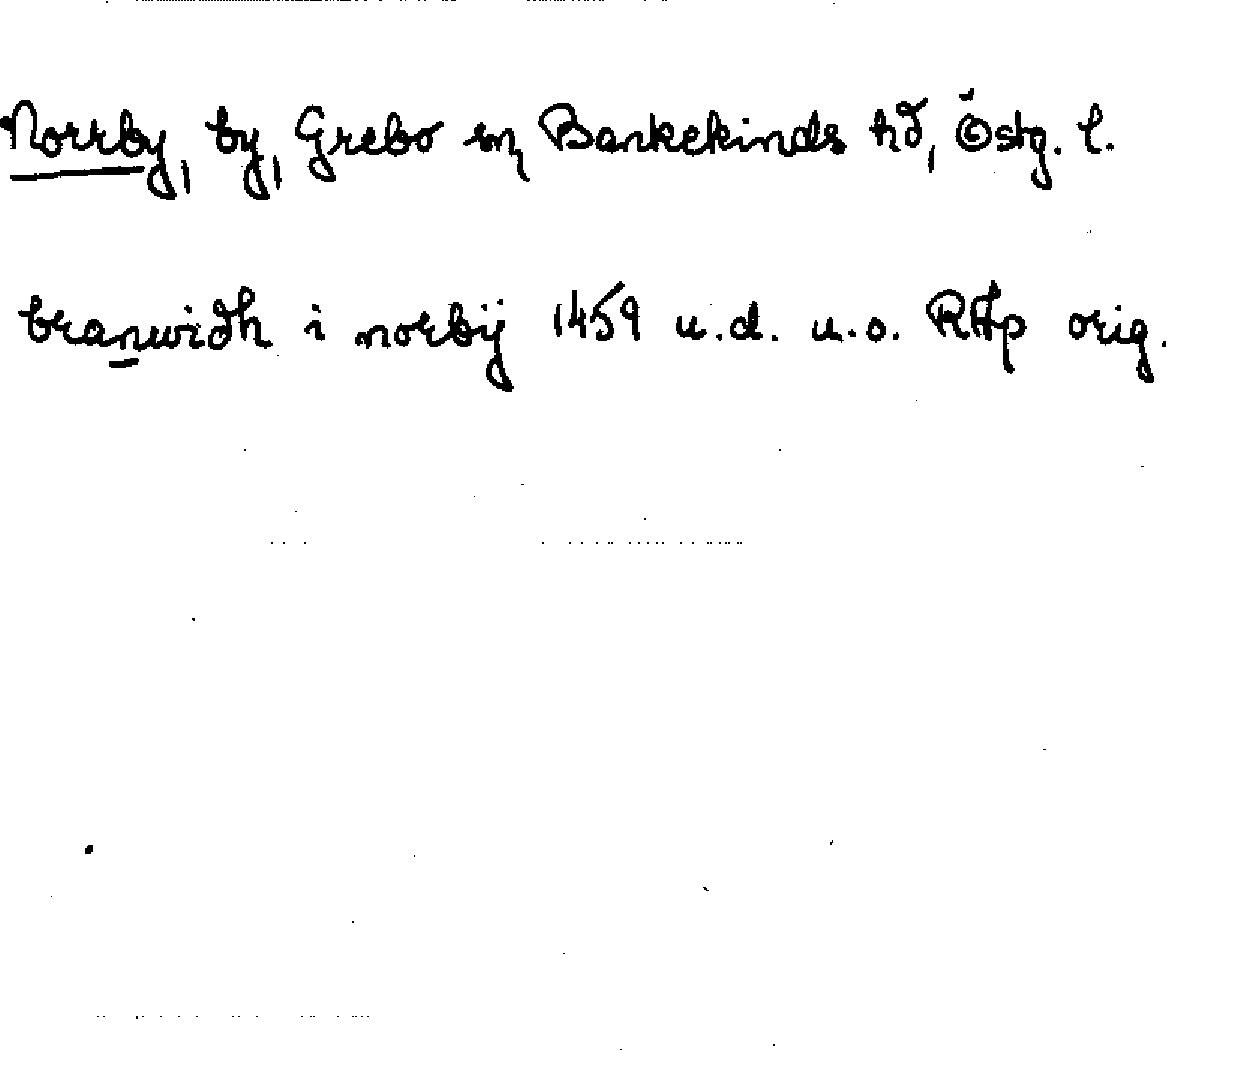 Norrby, by, Grebo sn, Bankekinds hd, Östg. l.
branwidh i norbÿ 1459 u.d. u.o. RAp orig.